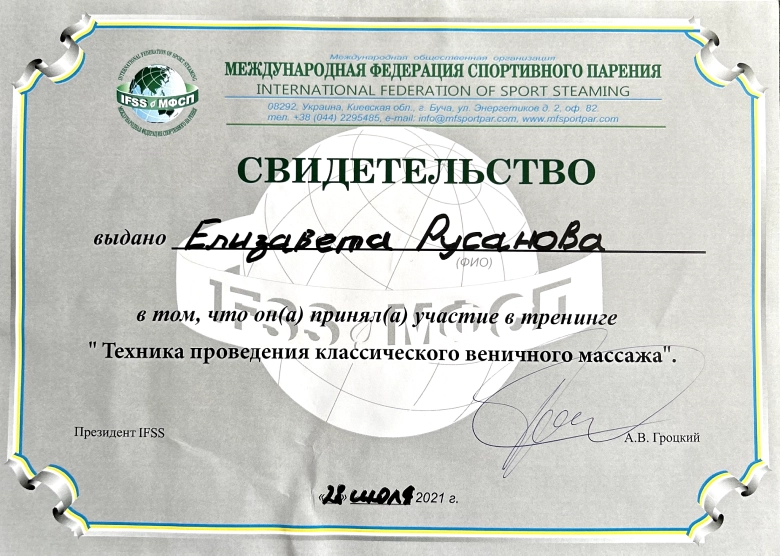 INTERNATIONAL FEDERATION OF SPORT STEAMING
IFSS МФСП
МЕЖДУНАРОДНАЯ ФЕДЕРАЦИЯ СПОРТИВНОГО ПАРЕНИЯ
Международная общественная организация
МЕЖДУНАРОДНАЯ ФЕДЕРАЦИЯ СПОРТИВНОГО ПАРЕНИЯ
INTERNATIONAL FEDERATION OF SPORT STEAMING
08292, Украина, Киевская обл., г. Буча, ул. Энергетиков д. 2, оф. 82.
тел. +38 (044) 2295485, e-mail: info@mfsportpar.com, www.mfsportpar.com
СВИДЕТЕЛЬСТВО
выдано Елизавета Русанова
(ФИО)
IFSS МФСП
в том, что он(а) принял(а) участие в тренинге
" Техника проведения классического веничного массажа".
Президент IFSS
А.В. Гроцкий
«28» июля 2021 г.